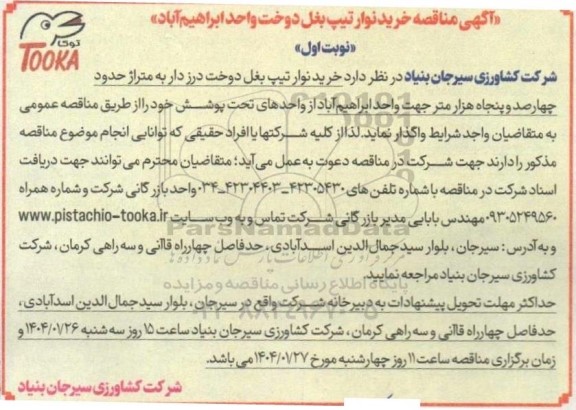 «آگهی مناقصه خرید نوار تیپ بغل دوخت واحد ابراهیم‌آباد»
«نوبت اول»
توکا
TOOKA
شرکت کشاورزی سیرجان بنیاد در نظر دارد خرید نوار تیپ بغل دوخت درز دار به متراژ حدود
چهارصد و پنجاه هزار متر جهت واحد ابراهیم‌آباد از واحدهای تحت پوشش خود را از طریق مناقصه عمومی
به متقاضیان واجد شرایط واگذار نماید. لذا از کلیه شرکتها یا افراد حقیقی که توانایی انجام موضوع مناقصه
مذکور را دارند جهت شرکت در مناقصه دعوت به عمل می‌آید؛ متقاضیان محترم می‌توانند جهت دریافت
اسناد شرکت در مناقصه با شماره تلفن های ۴۲۳۰۵۴۳۰_۴۲۳۰۴۴۰۳_۰۳۴ واحد بازرگانی شرکت و شماره همراه
۰۹۳۰۵۲۴۹۵۶۰ مهندس بابایی مدیر بازرگانی شرکت تماس و به وب سایت www.pistachio-tooka.ir
و به آدرس: سیرجان، بلوار سید جمال‌الدین اسدآبادی، حدفاصل چهارراه قاآنی و سه راهی کرمان، شرکت
کشاورزی سیرجان بنیاد مراجعه نمایید.
حداکثر مهلت تحویل پیشنهادات به دبیرخانه شرکت واقع در سیرجان، بلوار سید جمال الدین اسدآبادی،
حدفاصل چهارراه قاآنی و سه راهی کرمان، شرکت کشاورزی سیرجان بنیاد ساعت ۱۵ روز سه شنبه ۱۴۰۴/۰۱/۲۶ و
زمان برگزاری مناقصه ساعت ۱۱ روز چهارشنبه مورخ ۱۴۰۴/۰۱/۲۷ می باشد.
شرکت کشاورزی سیرجان بنیاد
ParsNamadData
پایگاه اطلاع رسانی مناقصه و مزایده